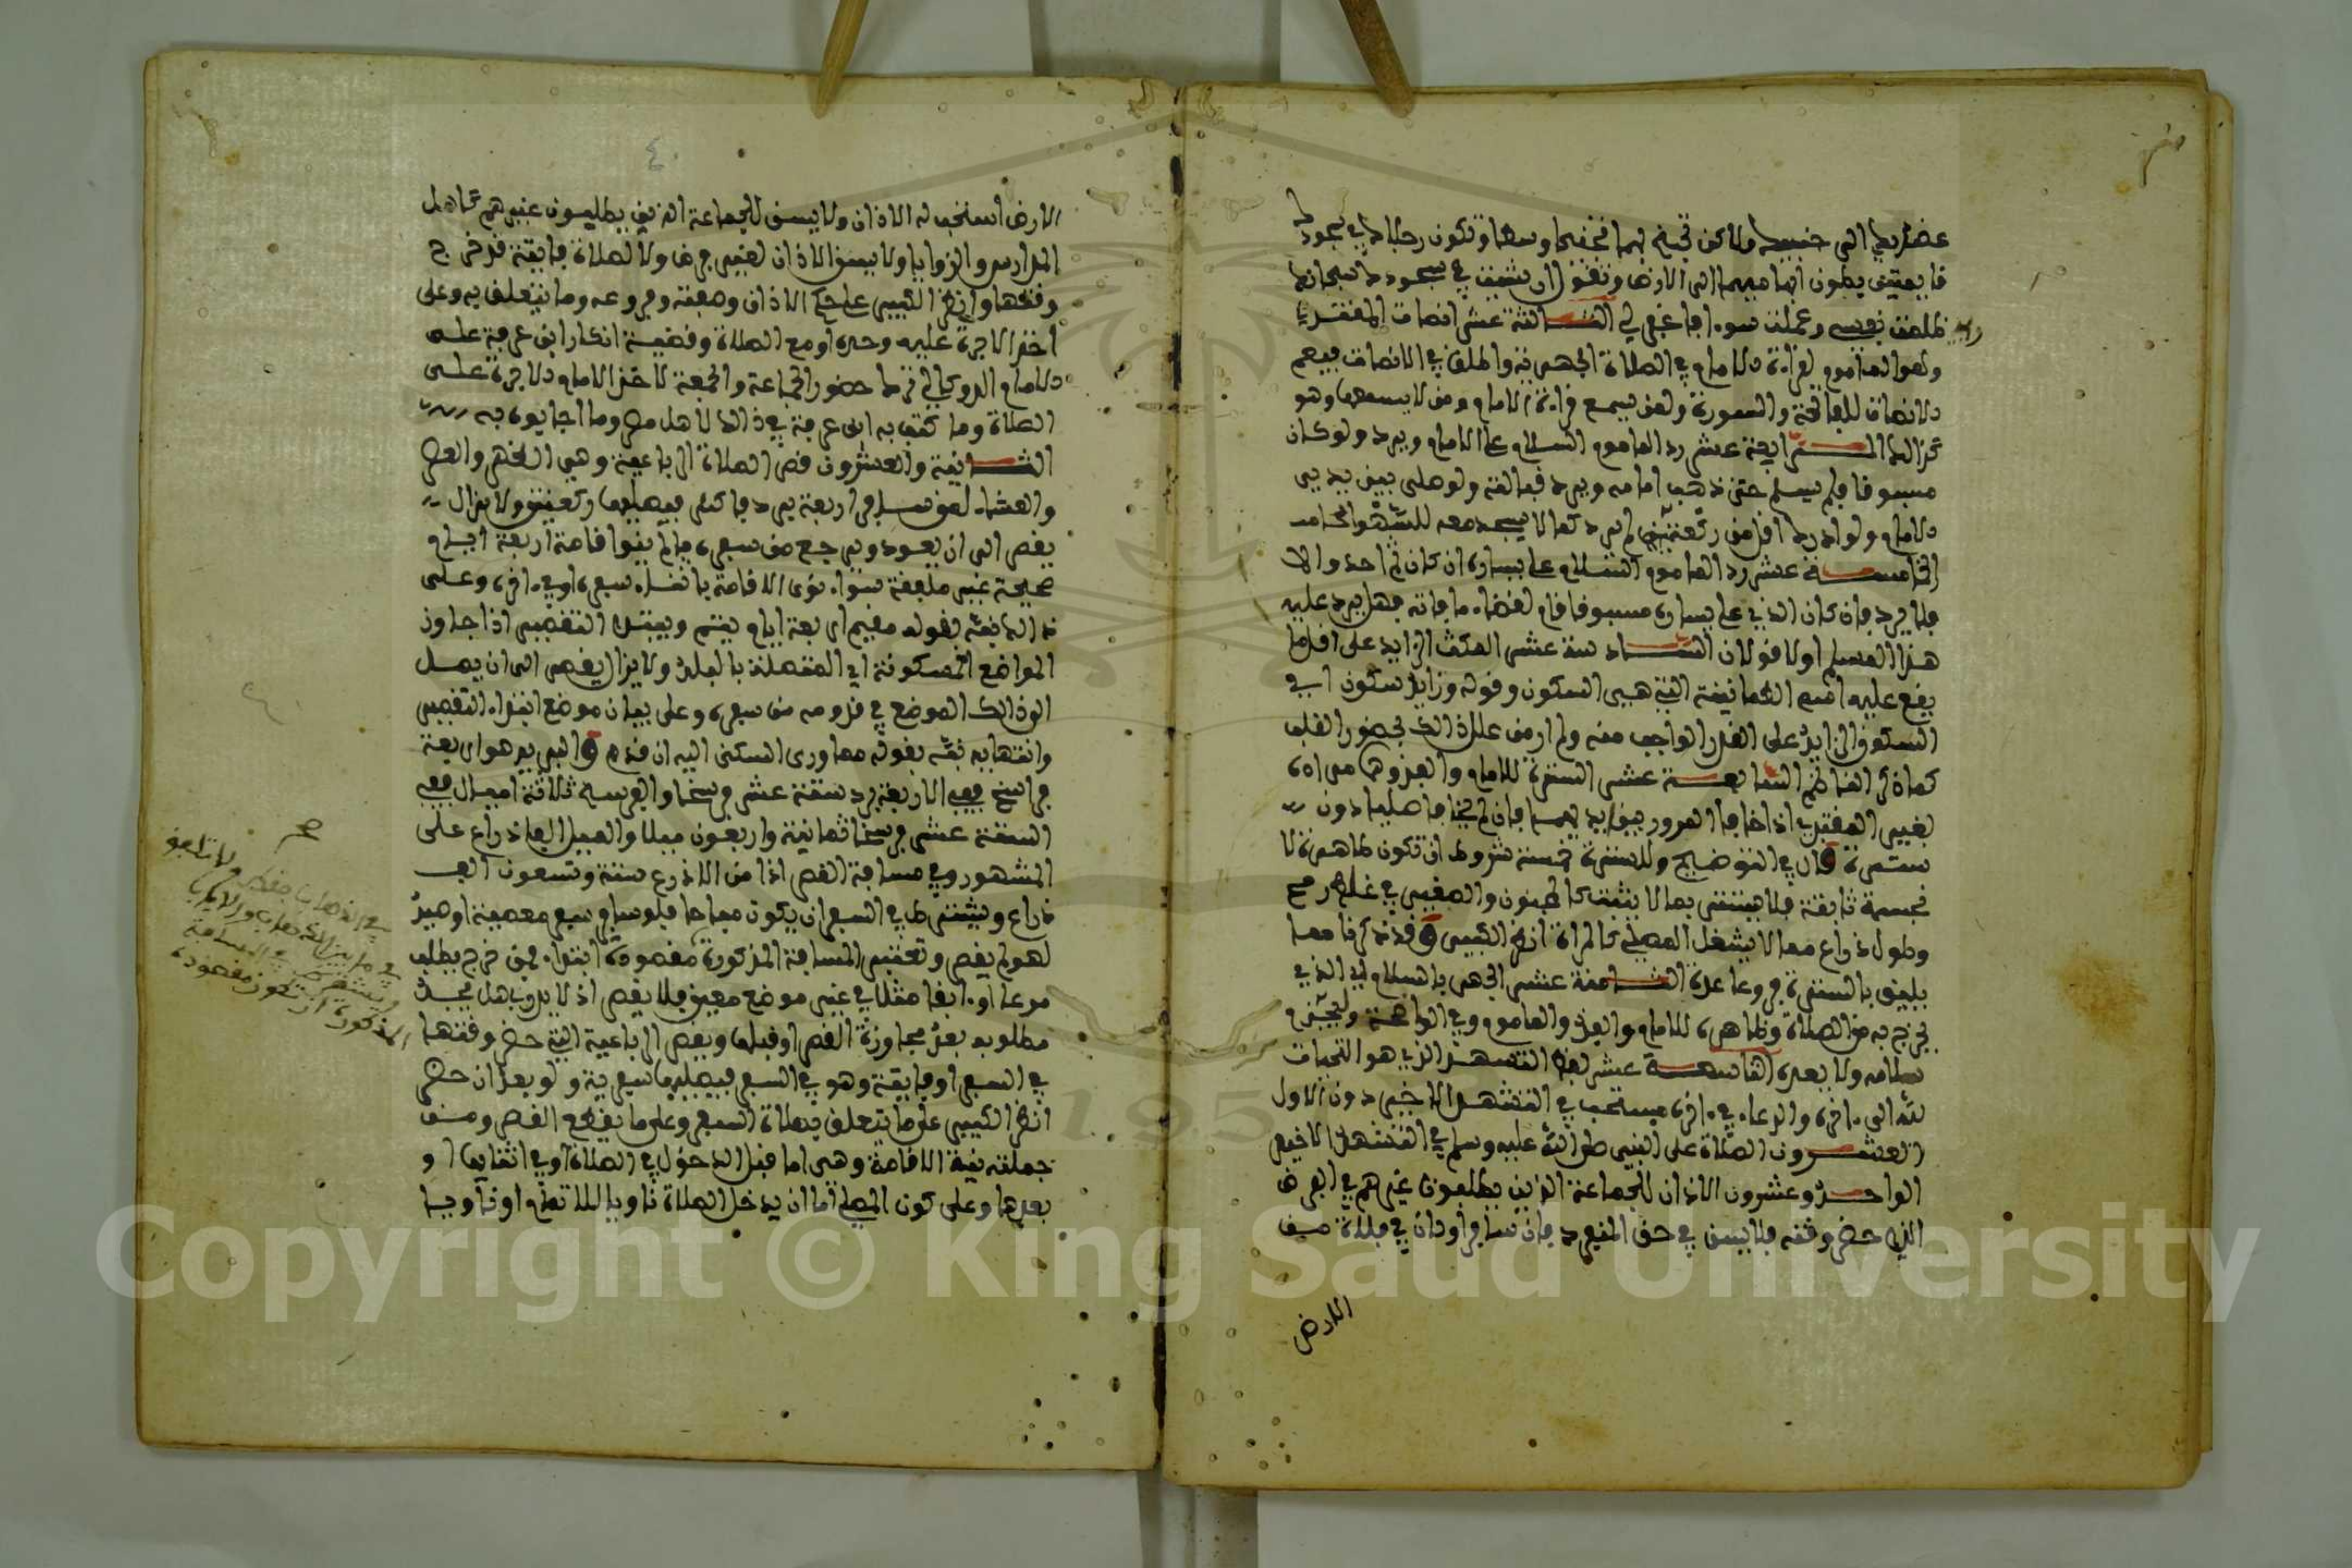 عضديها الى جنبيها ولاكن تجنح بهما تجنيحا وسطا وتكون رجلاها في سجودها
قايمتين بطون ابهاميهما الى الارض وتقول ان شئت في سجودك سبحانك
ظلمت نفسي وعملت سوءا فاغفر لي الثالثة عشر انصات المقتدي
وهو الماموم لقراءة الامام في الصلاة الجهرية واطلق في الانصات فيعم
الانصات للفاتحة والسورة ولمن يسمع قراءة الامام ومن لا يسمعها وهو
كذالك الرابعة عشر رد الماموم السلام على الامام ويرد ولو كان
مسبوقا فلم يسلم حتى ذهب امامه ويرد قبالته ولو صلى بين يدي
الامام ولو ادرك اقل من ركعة لم يرد كما لا يسجد معه للسهو
الخامسة عشر رد الماموم السلام على يساره ان كان ثم احد والا
فلا يرد فان كان الذي على يساره مسبوقا قام لقضاء ما فاته فهل يرد عليه
هذا المسلم او لا قولان السادسة عشر المكث الزايد على اقل ما
يقع عليه اسم الطمانينة التي هي السكون وقوله وزايد سكون اي
السكون الزايد على القدر الواجب منه ولم ار من علل ذالك بحضور القلب
كما ذكر الناظم السابعة عشر السترة للامام والفذ
لغير المقتدي اذا خافا المرور بين ايديهما فان لم يخافا صليا دون
سترة قال في التوضيح وللسترة خمسة شروط ان تكون طاهرة لا
نجسة ثابتة فلا يستتر بما لا يثبت كالمجنون والصغير في غلظ رمح
وطول ذراع مما لا يشغل المصلي كالمراة انظر الكبير فقد ذكرنا مما
يليق بالسترة فروعا عدة الثامنة عشر الجهر بالسلام اي الذي
يخرج به من الصلاة وظاهره للامام والفذ والماموم وفي الواضحة وليحذف
سلامه ولا يمده التاسعة عشر لفظ التشهد الذي هو التحيات
لله الى ءاخره والدعاء في ءاخره يستحب في التشهد الاخير دون الاول
العشرون الصلاة على النبي صلى الله عليه وسلم في التشهد الاخير
الواحد وعشرون الاذان للجماعة الذين يطلبون غيرهم في الفرض
الذي حضر وقته فلا يسن في حق المنفرد فان سافر او كان في فلاة من
الارض
الارض استحب له الاذان ولا يسن للجماعة الذين يطلبون غيرهم كاهل
المدارس والزوايا ولا يسن الاذان لغير فرض ولا لصلاة فايتة قد خرج
وقتها وانظر الكبير على حكم الاذان وصفته وفروعه وما يتعلق به وعلى
اخذ الاجرة عليه وحده او مع الصلاة وقضية انكار ابن عرفة على
الامام الدوكالي ترك حضور الجماعة والجمعة لاخذ الامام الاجرة على
الصلاة وما كتب به ابن عرفة في ذالك لاهل مصر وما اجابوه به
الثانية والعشرون قصر الصلاة الرباعية وهي الظهر والعصر
والعشاء لمن سافر اربعة برد فاكثر فيصليها ركعتين ولا يزال
يقصر الى ان يعود ويرجع من سفره ما لم ينو اقامة اربعة ايام
صحيحة غير ملفقة سواء نوى الاقامة باثناء سفره او في ءاخره وعلى
ذالك نبه بقوله مقيم اربعة ايام يتم ويبتدئ التقصير اذا جاوز
المواضع المسكونة اي المتصلة بالبلد ولا يزال يقصر الى ان يصل
الى ذالك الموضع في قدومه من سفره وعلى بيان موضع ابتداء التقصير
وانتهايه نبه بقوله مما ورى السكنى اليه ان قدم والبريد هو اربعة
فراسخ ففي الاربعة برد ستة عشر فرسخا والفرسخ ثلاثة اميال ففي
الستة عشر فرسخا ثمانية واربعون ميلا والميل الفا ذراع على
المشهور وفي مسافة القصر اذا من الاذرع ستة وتسعون الف
ذراع ويشترط في السفر ان يكون مباحا فلو سافر سفر معصية او صيد
لهو لم يقصر وتعتبر المسافة المذكورة مقصودة ابتداء فمن خرج يطلب
مرعا او ابقا مثلا في غير موضع معين فلا يقصر اذ لا يدري هل يجد
مطلوبه بعد مجاوزة القصر او قبلها ويقصر الرباعية التي حضر وقتها
في السفر او فايتة وهو في السفر فيصليها سفرية ولو بعد ان حضر
انظر الكبير على ما يتعلق بصلاة السفر وعلى ما يقطع القصر ومن
جملته نية الاقامة وهي اما قبل الدخول في الصلاة او في اثنايها او
بعدها وعلى كون المصلي اما ان يدخل الصلاة ناويا للاتمام او ناويا